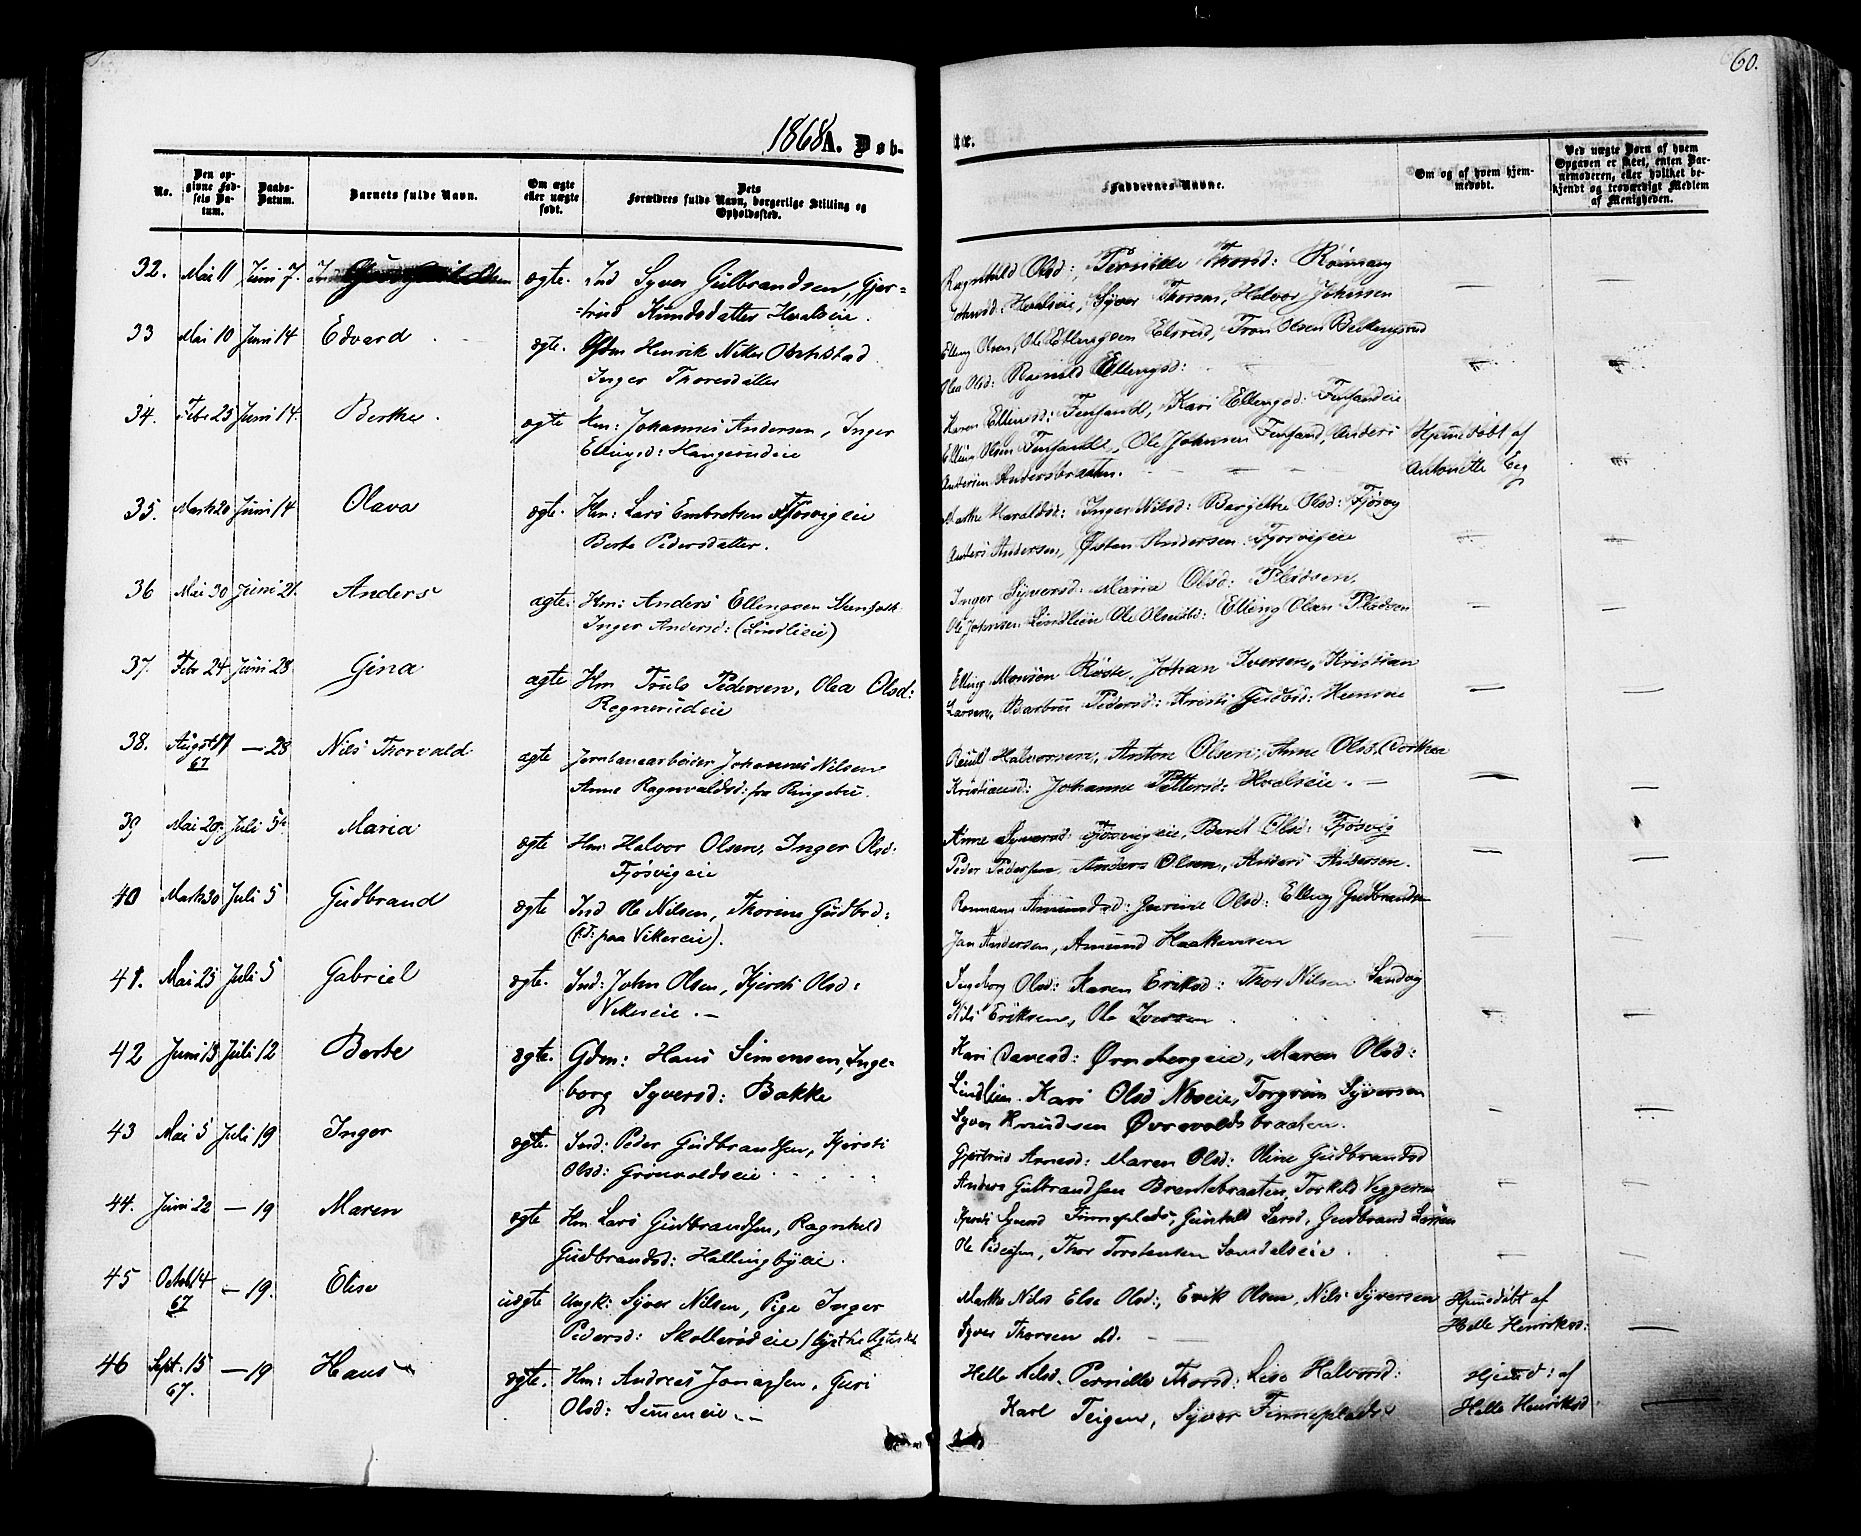 60.
1868 A. Døb-
te.
No.
Den op-
givne Fød-
sels Da-
tum.
Daabs-
Datum.
Barnets fulde Navn.
Om ægte
eller uægte
født.
Dets
Forældres fulde Navn, borgerlige Stilling og
Opholdssted.
Faddernes Navne.
Om og af hvem hjem-
medøbt.
Ved uægte Børn af hvem
Opgaven er skeet, enten Bar-
nemoderen, eller hvilket be-
kjendt og troværdigt Medlem
af Menigheden.
32. Mai 11 Juni 7. ægte. Ind Syver Gulbrandsen, Gjer-
trud Knudsdatter Hvalseie.
Ragnhild Olsd:, Pernille Thorsd: Rønnaug
Johnsd: Hvalseie, Syver Thorsen, Halvor Johnsen
33 Mai 10 Juni 14 Edvard ægte. Gdm Henrik
Inger Thoresdatter
Elling Olsen, Ole Ellingsen Elsrud, Tron Olsen
Olea Olsd: Ragnild Ellingsd:
34. Febr 23 Juni 14. Berthe. ægte Hm: Johannes Andersen, Inger
Ellingsd: Haugerudeie
Karen Ellensd: Fenfandt, Kari Ellengsd: Fenfandeie
Elling Olsen Fenfandt, Ole Johnsen Fenfand, Anders
Andersen Andersbraaten.
Hjemedøbt af
Antonette Eeg
35. Marts 20 Juni 14 Olava ægte. Hm: Lars Embretsen Fjøsvigeie
Berte Pedersdatter.
Marthe Haraldsd: Inger Nilsd: Bergitte Olsd: Fjøsvig
Anders Andersen, Østen Andersen Fjøsvigeie
36 Mai 30 Juni 21. Anders ægte. Hm: Anders Ellengsen
Inger Andersd: (Lindlieie)
Inger Syversd: Maria Olsd: Pladsen,
Ole Johnsen Lindlieie Ole Elling Olsen Pladsen
37. Febr 24 Juni 28 Gina ægte Hm Truls Pedersen, Olea Olsd:
Ragnerudeie
Elling Monsen Røste, Johan Iversen, Kristian
Larsen, Barbro Pedersd: Kristi Gudbrd:
38. August 17
67 — 28 Nils Thorvald ægte Jernbanearbeider Johannes Nilsen
Anne Ragnvaldsd: fra Ringebu.
Halvorsen, Anton Olsen, Anne Olsd, Dorthea
Kristiansd: Johanne Pettersd: Hvalseie. —
39 Mai 29. Juli 5. Maria ægte Hm: Halvor Olsen, Inger Olsd:
Fjøsvigeie
Anne Syversd: Fjøsvigeie, Beret Olsd: Fjøsvig
Peder Pedersen, Anders Olsen, Anders Andersen.
40 Marts 30 Juli 5 Gudbrand ægte Ind Ole Nilsen, Thorine Gudbrd:
(f.t: paa Vikereie).
Rønnaug Amundsd: Olsd: Elling Gudbrandsen
Jan Andersen, Amund Haakensen
41. Mai 25 Juli 5 Gabriel ægte. Ind: John Olsen, Kjersti Olsd:
Vikereie. —
Ingeborg Olsd: Karen Eriksd: Thor Nilsen Sandvig
Nils Eriksen, Ole Iversen
42 Juni 13 Juli 12 Berte ægte. Gdm: Hans Simensen, Inge-
borg Syversd: Bakke
Kari Ørnebergeie, Maren Olsd:
Lindlien. Kari Olsd Næseie, Torgrim Syversen
Syver Knudsen Øvrevoldsbraaten.
43 Mai 5 Juli 19 Inger ægte. Ind: Peder Gudbrandsen, Kjersti
Olsd: Grønvoldseie
Gjertrud Arnesd: Maren Olsd: Oline Gudbrandsd
Anders Gulbrandsen Brentebraaten, Torkild Veggeren
44. Juni 22 — 19 Maren ægte Hm Lars Gudbrandsen, Ragnhild
Gudbrandsd: Hallingbyeie.
Kjersti Finneplads, Gunhild Larsd, Gudbrand Larsen
Ole Pedersen, Thor Torstensen
45 Octob 14
67 — 19. Elise uægte Ungk: Syver Nilsen, Pige Inger
Pedersd: Skollerudeie
Marthe Nilsd Else Olsd:, Erik Olsen, Nils Syversen
Syver Thorsen
Hjemedøbt af
Helle Henriksd:
46 Sept: 15
67. — 19 Hans ægte. Hm: Andreas Jonassen, Guri
Olsd:
Helle Nilsd, Pernille Thorsd: Lise Halvorsd:
Karl Teigen, Syver Finneplads
Hjemd: af
Helle Henriksd: